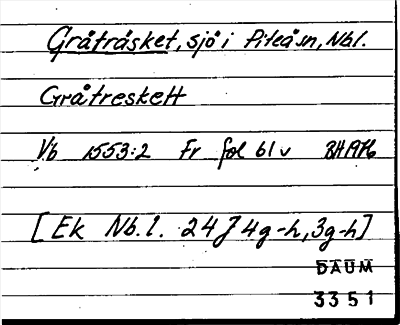 Gråträsket, sjö i Piteåsn, Nbl.
Gråtreskett
Vb 1553:2 Fr fol 61 v BH 1976
[Ek Nb.l. 24J 4g-h, 3g-h]
DAUM
3351